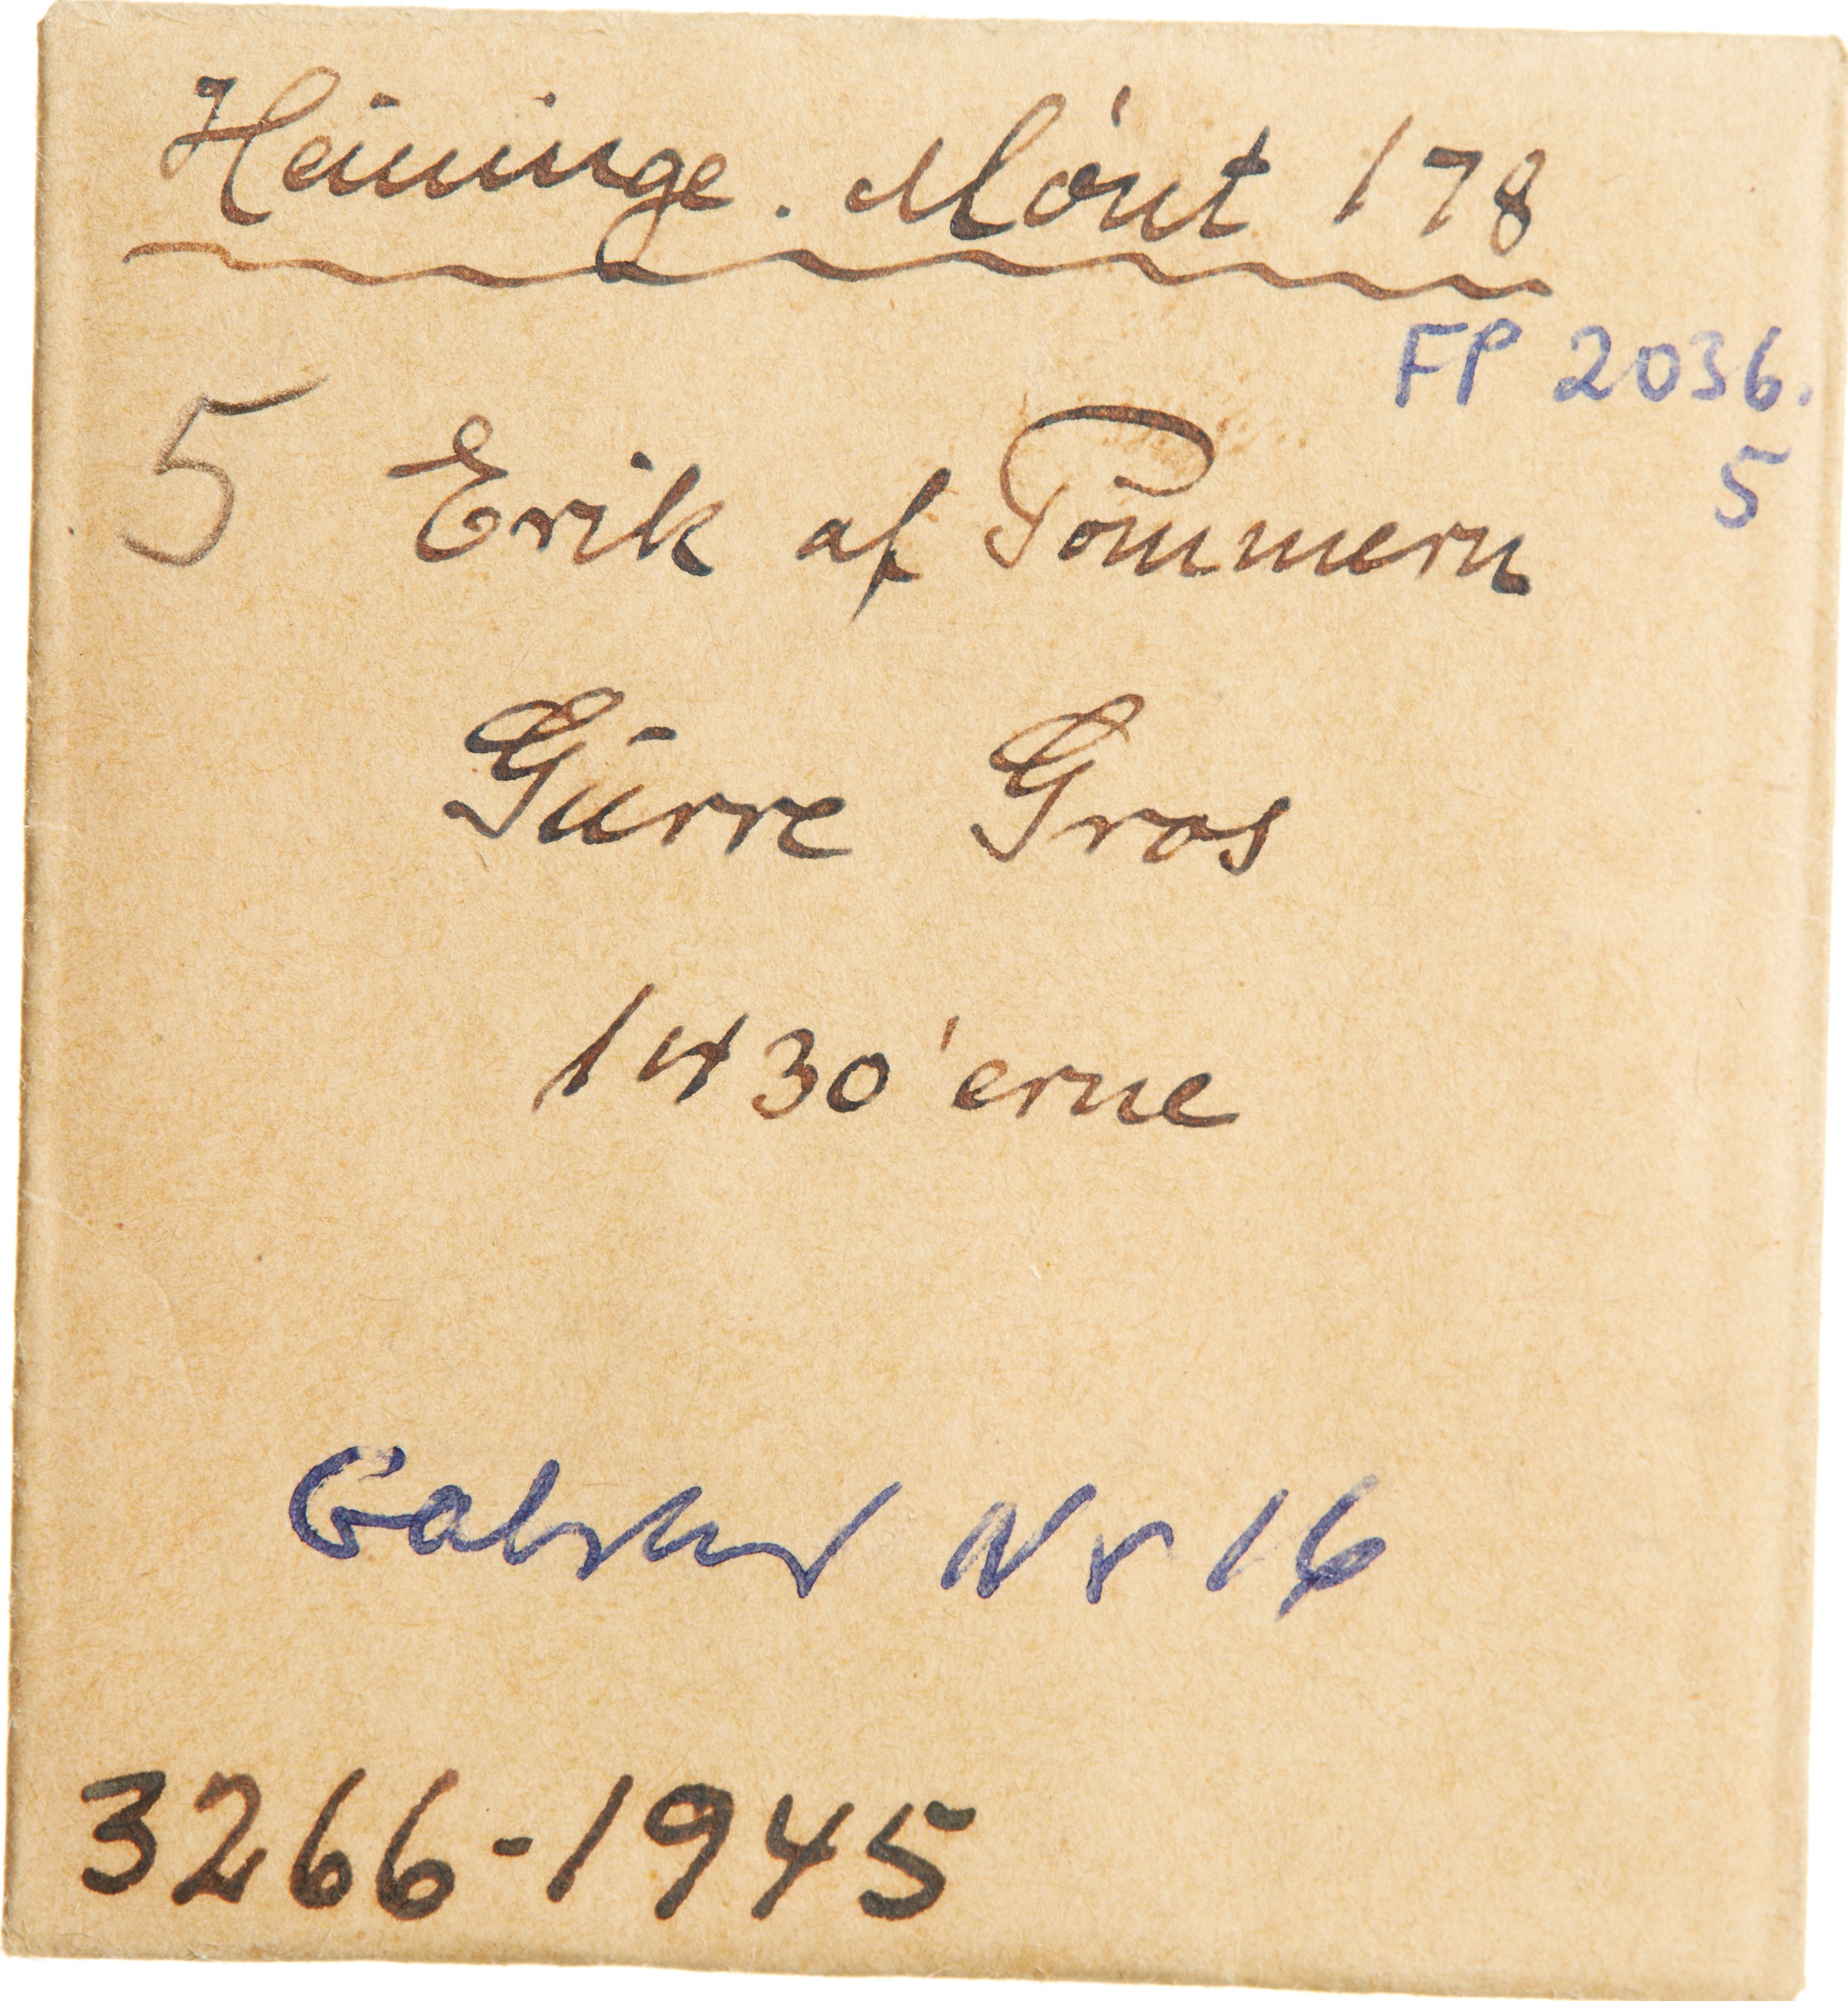 Heininge. Mönt 178
FP 2036.
5
5 Erik af Pommern
Gürre Gros
1430'erne
Galster Nr 16
3266-1945